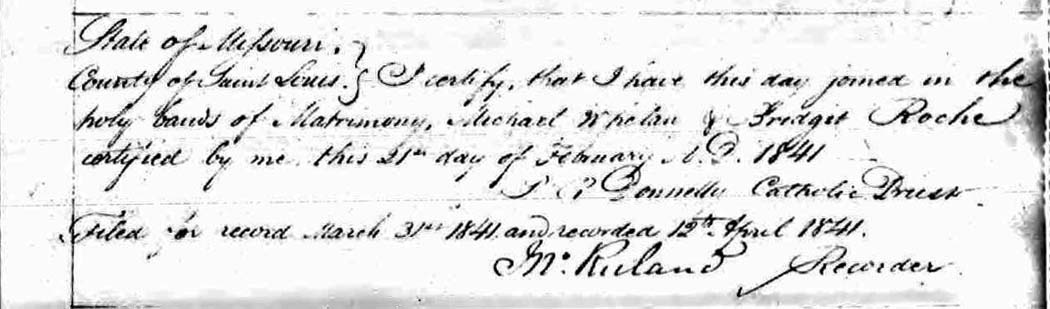 State of Missouri. }
County of Saint Louis. } I certify, that I have this day joined in the
holy bands of Matrimony, Michael Whelan & Bridget Roche
certified by me this 21st day of February A. D. 1841
Donnelly Catholic Priest
Filed for record March 31st 1841 and recorded 12th April 1841.
Jno. Ruland Recorder